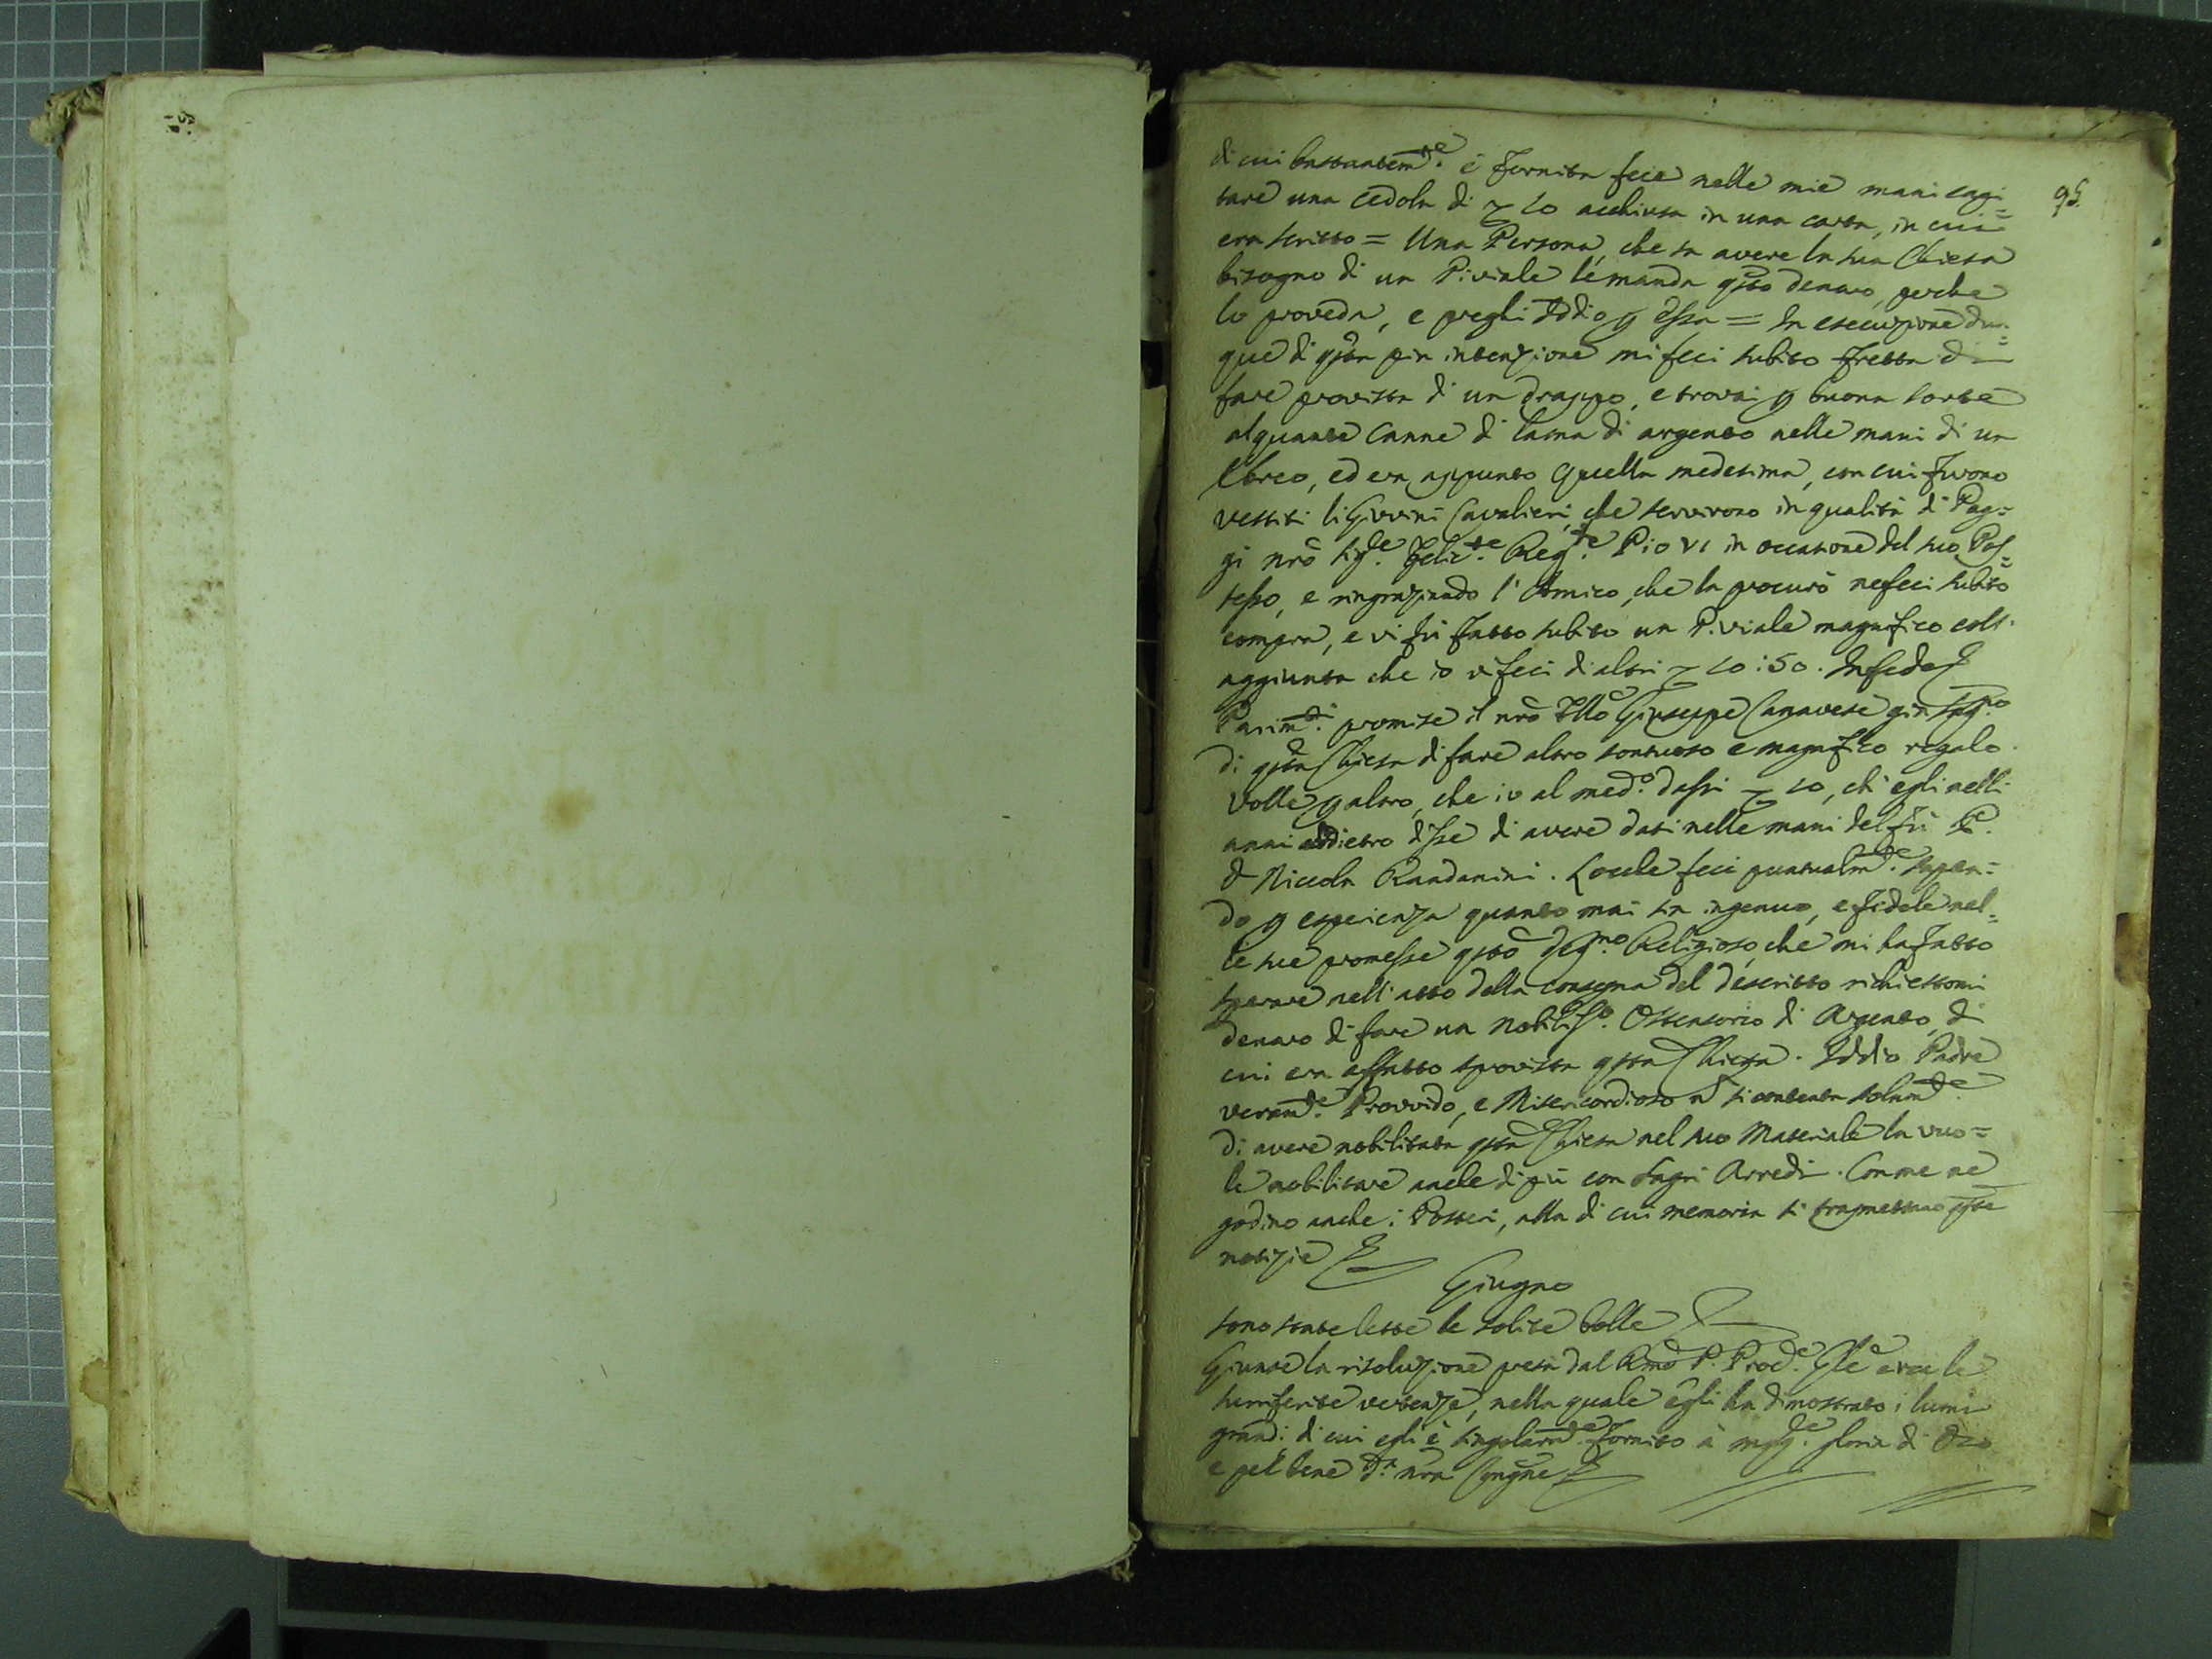 95.
di cui bastantem.te è fornita fece nelle mie mani capi=
tare una cedola di 10 acchiusa in una carta, in cui
era scritto = Una Persona, che sa avere la sua Chiesa
bisogno di un Piviale le manda q.sto denaro, perche
lo proveda, e preghi Iddio p essa = In esecuzione dun=
que di q.sta pia intenzione mi feci subito fretta di
fare provista di un drappo, e trovai p buona sorte
alquante Canne di lama di argento nelle mani di un
Ebreo, ed era appunto quella medesima, con cui furono
vestiti li Giovini Cavalieri, che servirono in qualità di Pag=
gi nrõ Sig.re Felic.te Reg.te Pio VI in occasione del suo Pos=
sesso, e ringraziando l'Amico, che la procurò ne feci subito
compra, e vi fù fatto subito un Piviale magnifico coll'
aggiunta che io vi feci di altri 10:50. In fede
Parim.ti promise il nrõ Giuseppe Canavese già
di q.sta Chiesa di fare altro sontuoso e magnifico regalo.
Volle p altro, che io al med.o dassi 10, ch'egli nelli
anni addietro disse di avere dati nelle mani del fù P.
D Niccola Randanini. Locche feci puntualm.te sapen=
do p esperienza quanto mai sia ingenuo, e fidele nel=
le sue promesse q.sto deg.mo Religioso, che mi ha fatto
sperare nell'atto della consegna del descritto richiestomi
denaro di fare un nobiliss.o Ostensorio di Argento, di
cui era affatto sprovista q.sta Chiesa. Iddio Padre
veram.te Provvido, e Misericordioso n si contenta solam.te
di avere nobilitata q.sta Chiesa nel suo Materiale la vuo=
le nobilitare anche di più con Sagri Arredi. Con me ne
godino anche i Posteri, alla di cui memoria si tramettano q.ste
notizie
Giugno
Sono state lette le solite bolle
Giunse la risoluzione presa dal Rmo P. Gle circa le
surriferite vertenze, nella quale egli ha dimostrato i lumi
grandi di cui egli è singolarm.te fornito à mag.re gloria di Dio
e pel bene d.a nra Congne